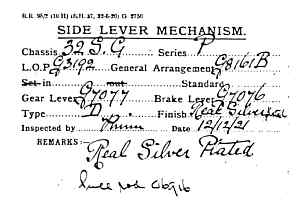 SIDE LEVER MECHANISM.
Chassis 32 S.G Series P
L.O.P. G3192 General Arrangement G8161B
Set in out Standard
Gear Lever G7077 Brake Lever G7076
Type D. Finish Real Silver
Inspected by Date 12/12/21
REMARKS:- Real Silver Plated